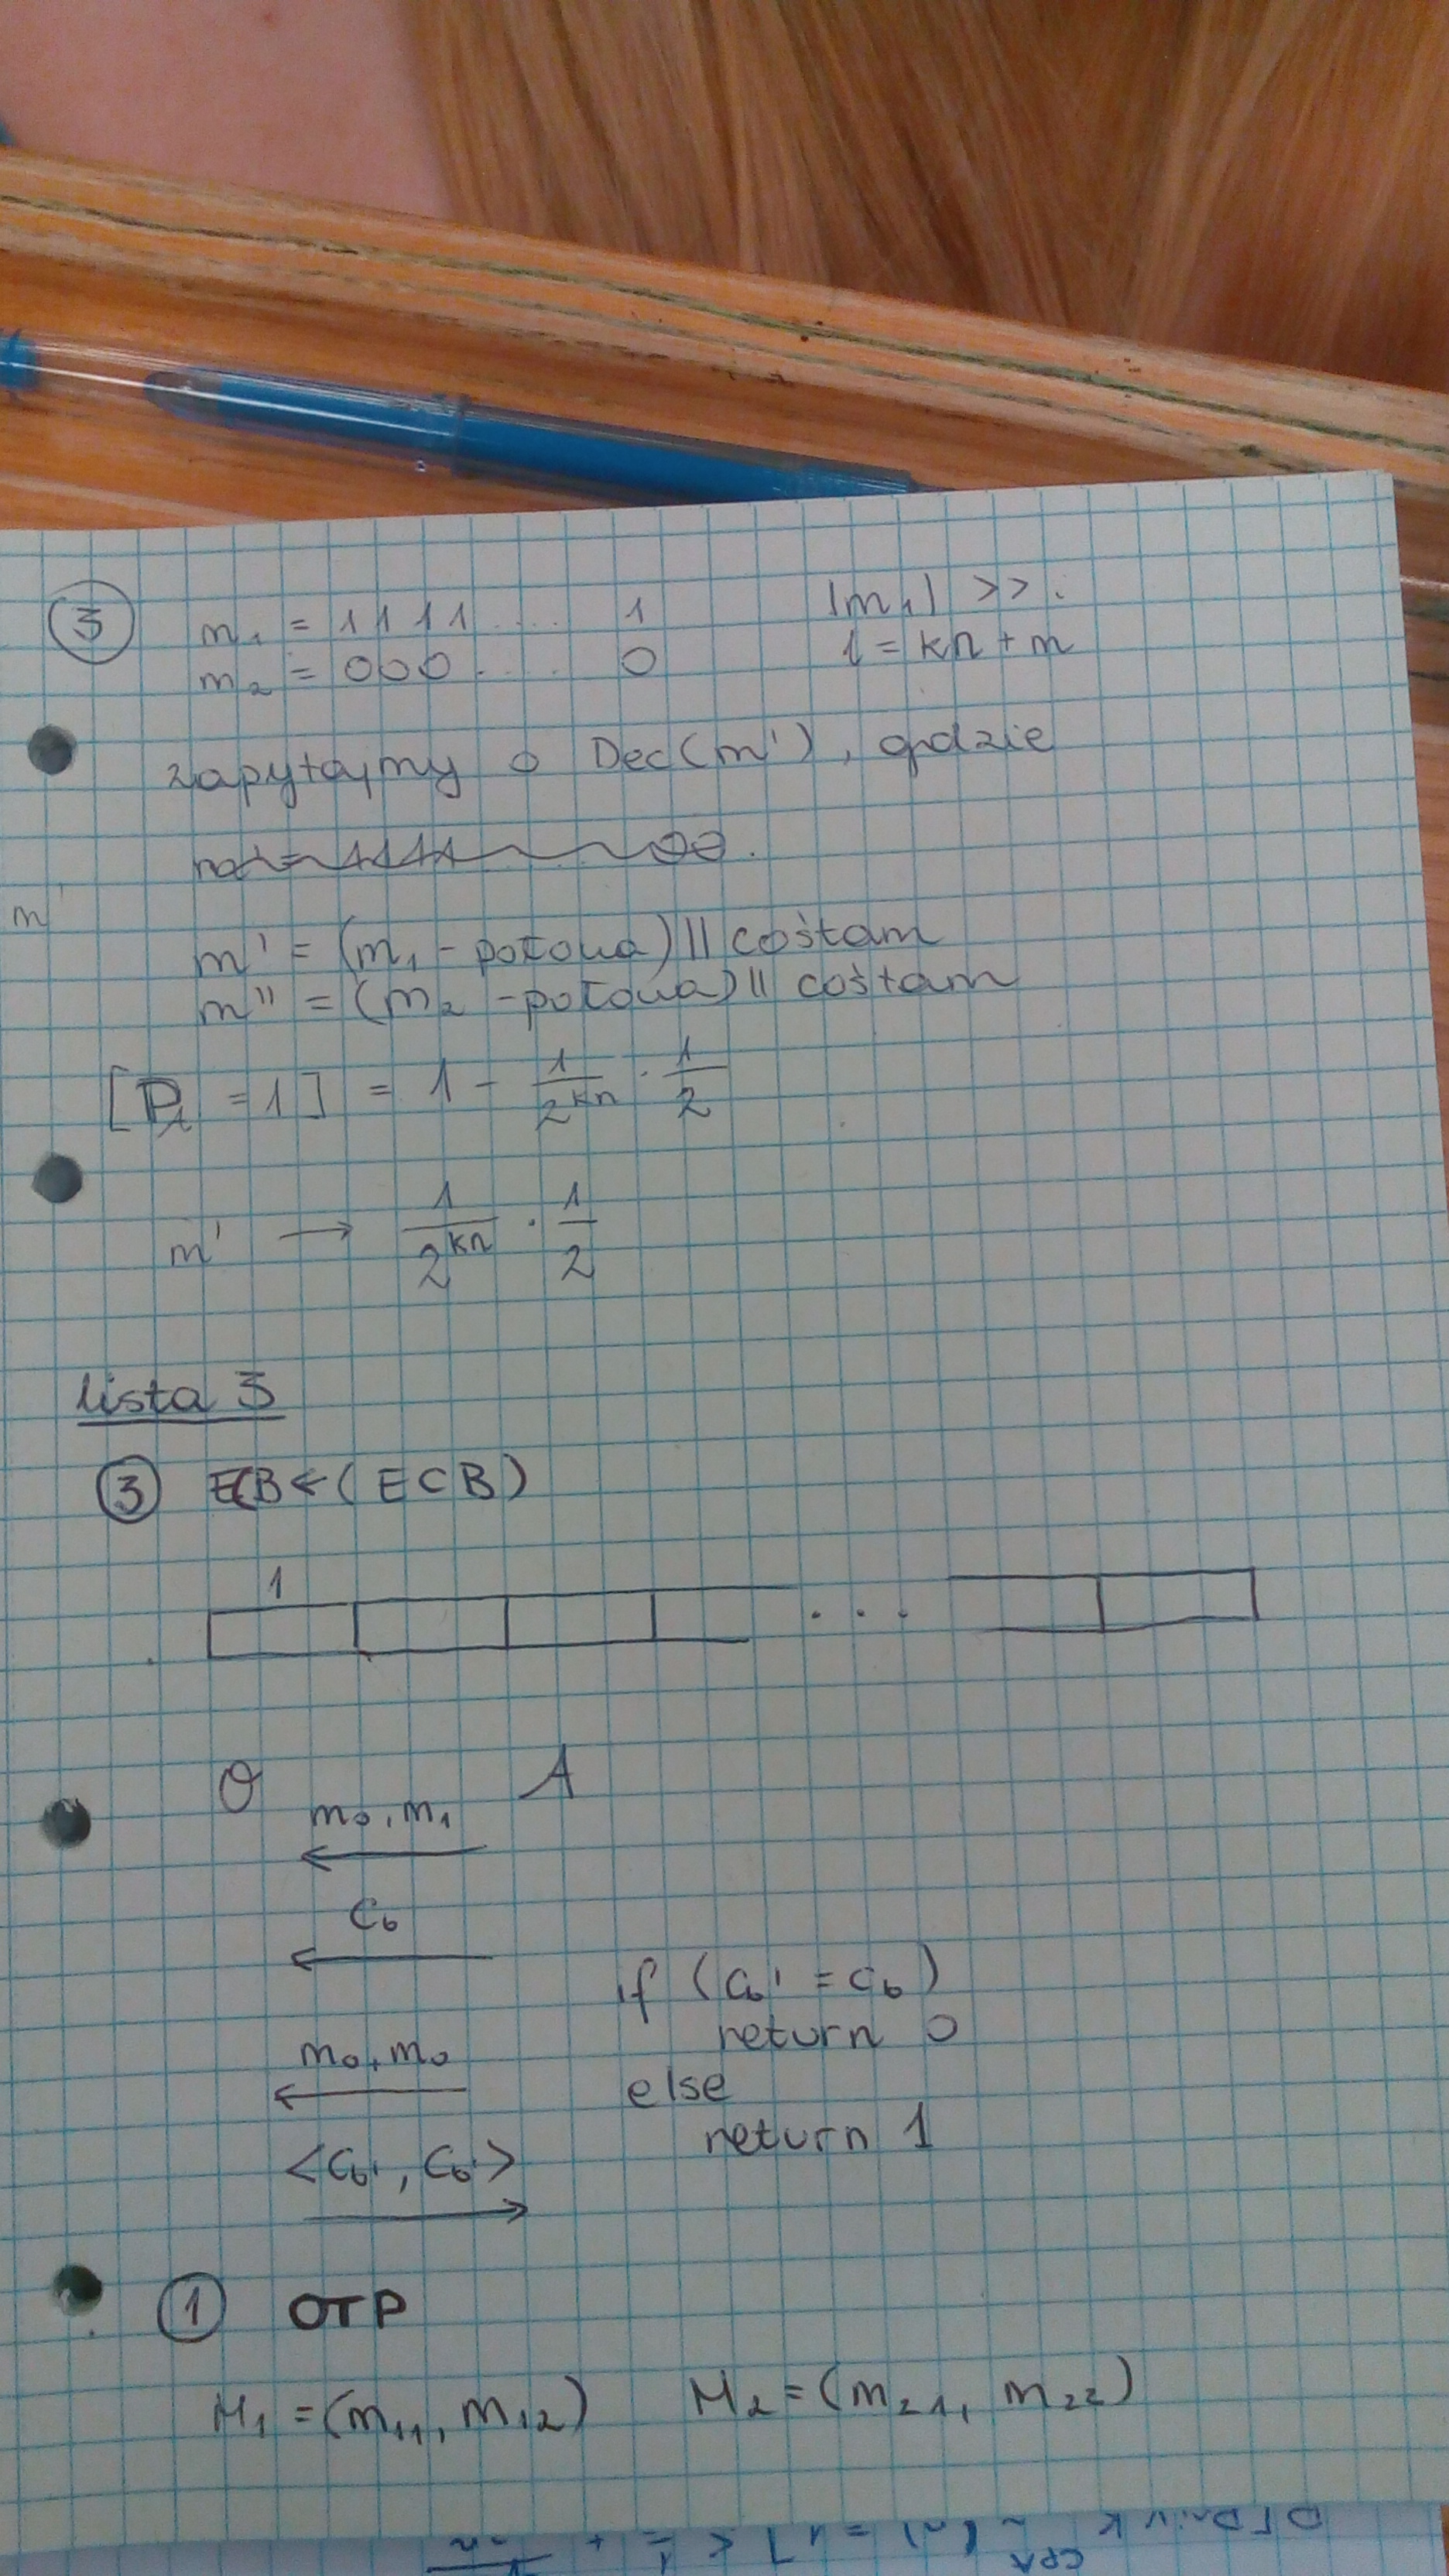 ③ m₁ = 1111 .... 1 |m₁| >> :
m₂ = 000 .... 0 l = kn + m
zapytajmy o Dec(m'), gdzie
m
m' = (m₁ - połowa) || cośtam
m'' = (m₂ - połowa) || cośtam
[P = 1] = 1 - 1/2^kn · 1/2
m' → 1/2^kn · 1/2
lista 3
③ ECB ← (ECB)
1
...
O A
m₀, m₁
←
c_b
←
if (c_b' = c_b)
return 0
m₀, m₀
←
else
return 1
<c_b', c_b'>
→
① OTP
M₁ = (m₁₁, m₁₂) M₂ = (m₂₁, m₂₂)